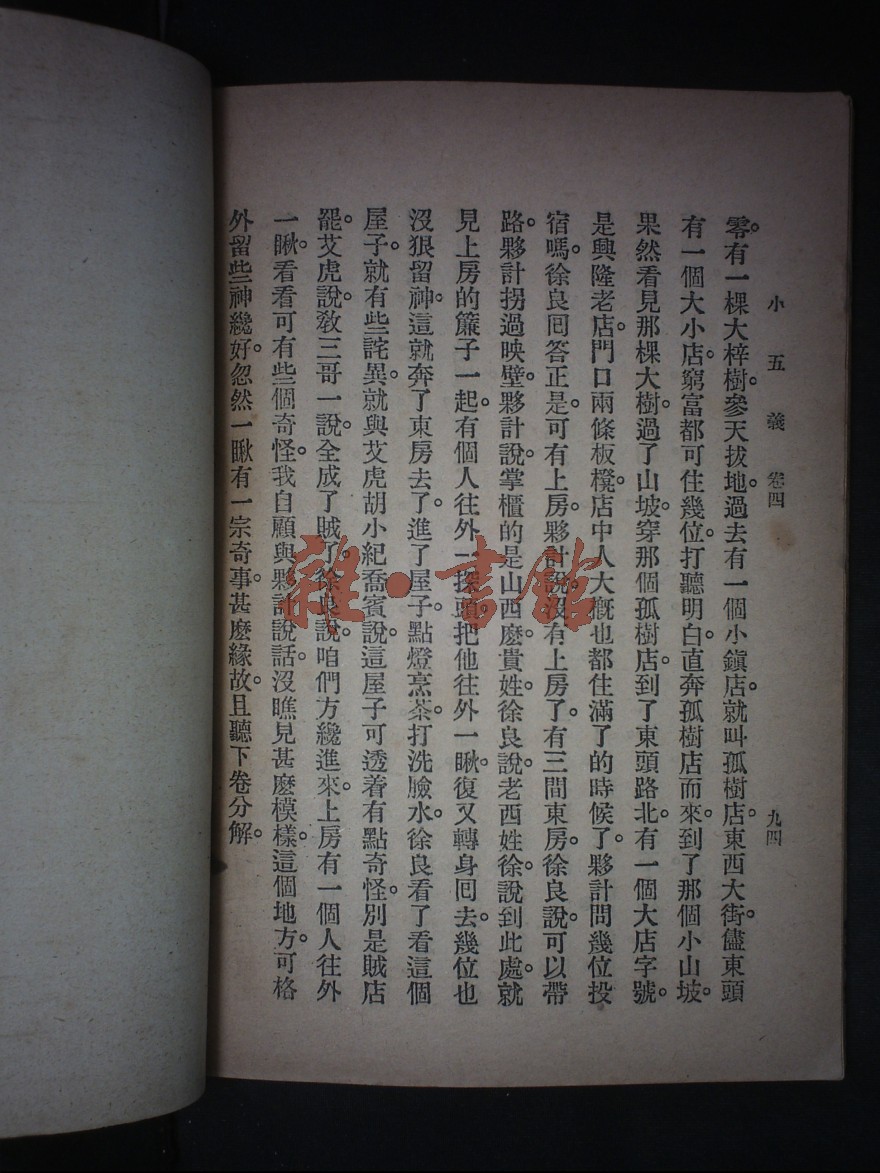 小五義 卷四 九四
零。有一棵大梓樹。參天拔地。過去有一個小鎮店。就叫孤樹店。東西大街。儘東頭
有一個大小店。窮富都可住幾位。打聽明白。直奔孤樹店而來。到了那個小山坡。
果然看見那棵大樹。過了山坡。穿那個孤樹店。到了東頭路北。有一個大店字號。
是興隆老店。門口兩條板櫈。店中人大槪也都住滿了的時候了。夥計問幾位投
宿嗎。徐良囘答正是。可有上房。夥計說。沒有上房了。有三間東房。徐良說。可以帶
路。夥計拐過映壁。夥計說。掌櫃的是山西麽。貴姓。徐良說。老西姓徐。說到此處。就
見上房的簾子一起。有個人往外一探頭。把他往外一瞅。復又轉身囘去。幾位也
沒狠留神。這就奔了東房去了。進了屋子。點燈烹茶。打洗臉水。徐良看了看這個
屋子。就有些詫異。就與艾虎胡小紀喬賓說。這屋子可透着有點奇怪。別是賊店
罷。艾虎說。敎三哥一說。全成了賊了。徐良說。咱們方纔進來。上房有一個人往外
一瞅。看看可有些個奇怪。我自顧與夥計說話。沒瞧見甚麽模樣。這個地方。可格
外留些神纔好。忽然一瞅有一宗奇事。甚麽緣故。且聽下卷分解。
雜·書館